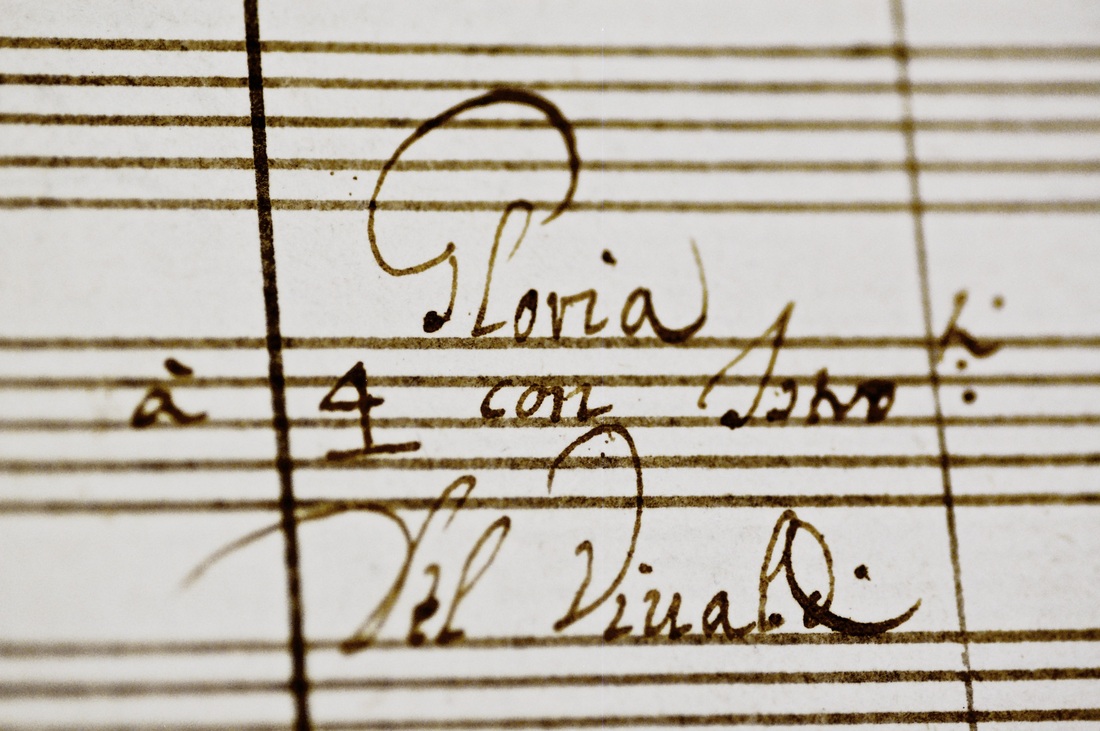 Gloria
à 4 con Istro:ti
Del Vivaldi